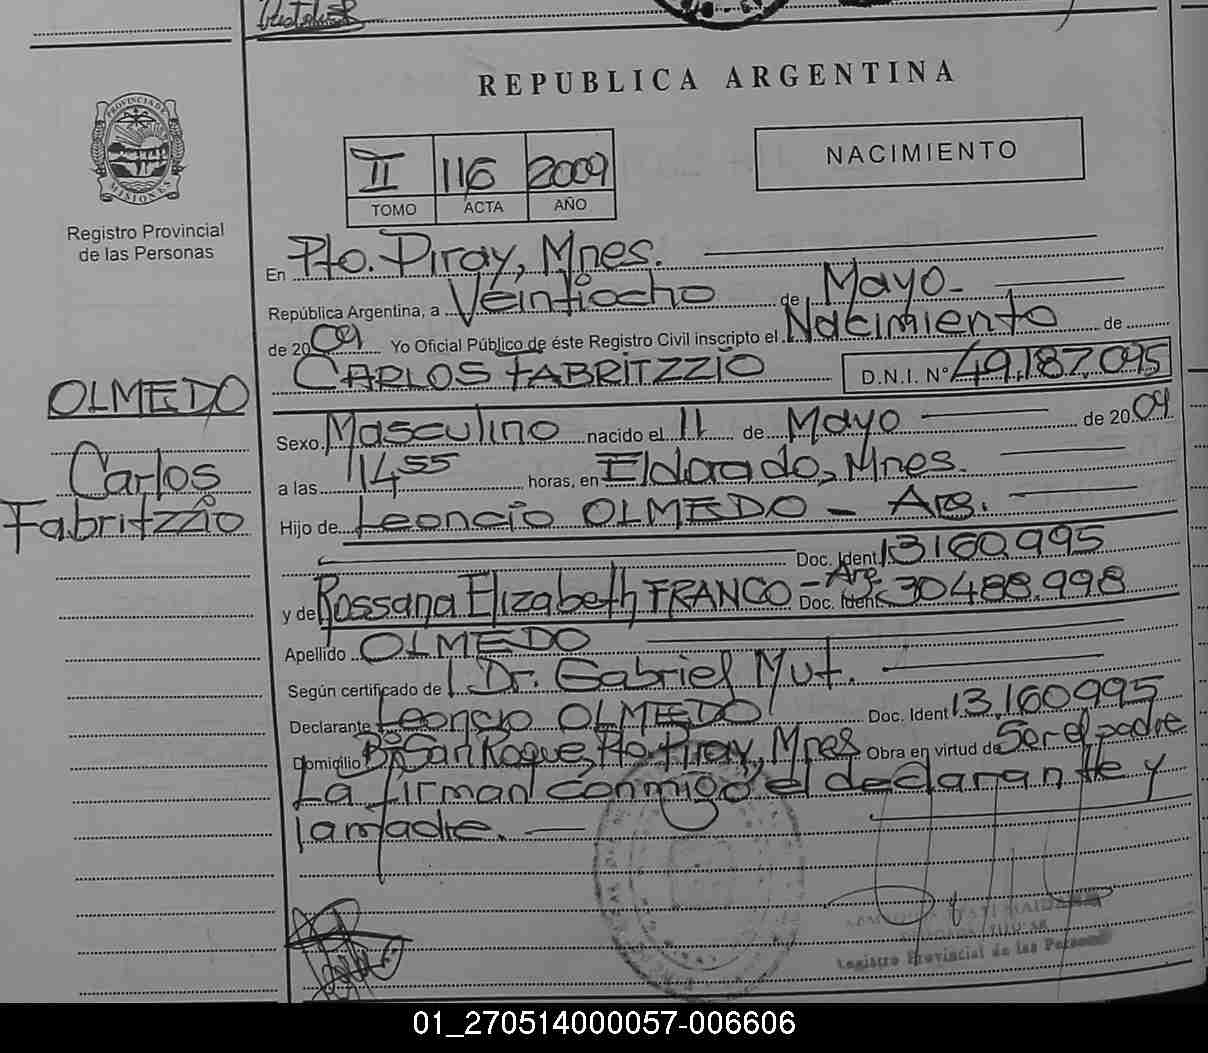 REPUBLICA ARGENTINA
PROVINCIA DE MISIONES
Registro Provincial
de las Personas
II 116 2009
TOMO ACTA AÑO
NACIMIENTO
En Pto. Piray, Mnes.
República Argentina, a Veintiocho de Mayo
de 2009 Yo Oficial Público de éste Registro Civil inscripto el Nacimiento de
CARLOS FABRITZZIO D.N.I. N° 49.187.095
OLMEDO
Carlos
Fabritzzio
Sexo Masculino nacido el 11 de Mayo de 2009
a las 14 55 horas, en Eldorado, Mnes.
Hijo de Leoncio OLMEDO - Arg.
Doc. Ident. 13160.995
y de Rossana Elizabeth FRANCO - Arg. Doc. Ident. 30.488.998
Apellido OLMEDO
Según certificado de Dr. Gabriel Mut.
Declarante Leoncio OLMEDO Doc. Ident. 13.160995
Domicilio B° San Roque, Pto Piray, Mnes Obra en virtud de Ser el padre
La firman conmigo el declarante y
la madre.
Registro Provincial de las Personas
01_270514000057-006606